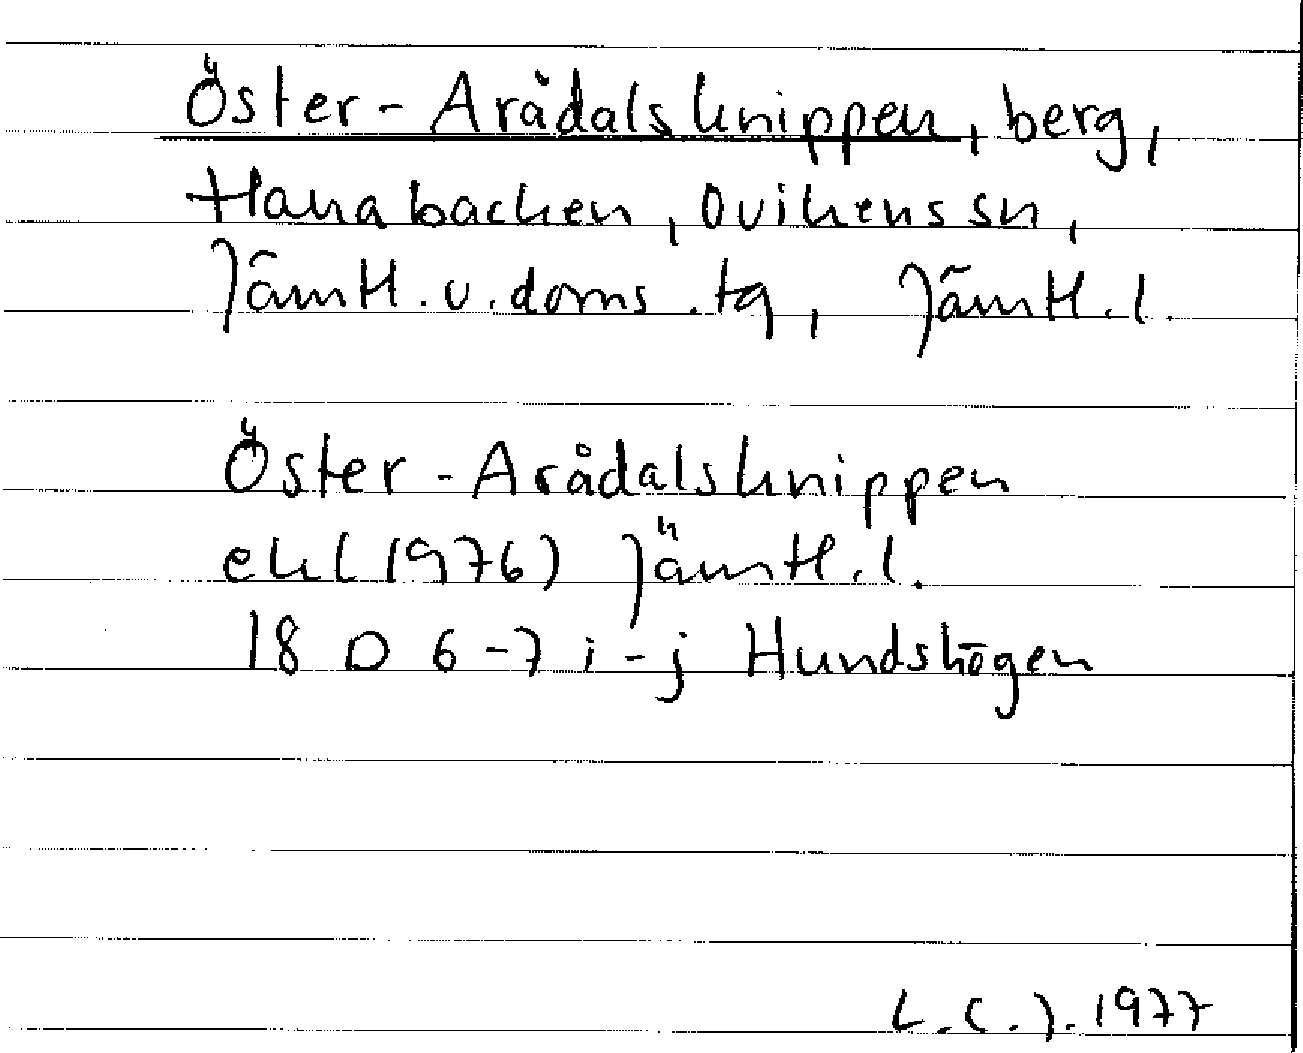 Öster-Arådalsknippen, berg,
Hanabacken, Ovikens sn,
Jämtl.v.doms.tg, Jämtl.l.
Öster-Arådalsknippen
ekl (1976) Jämtl.l.
18 D 6-7 i-j Hundshögen
L.C.J. 1977